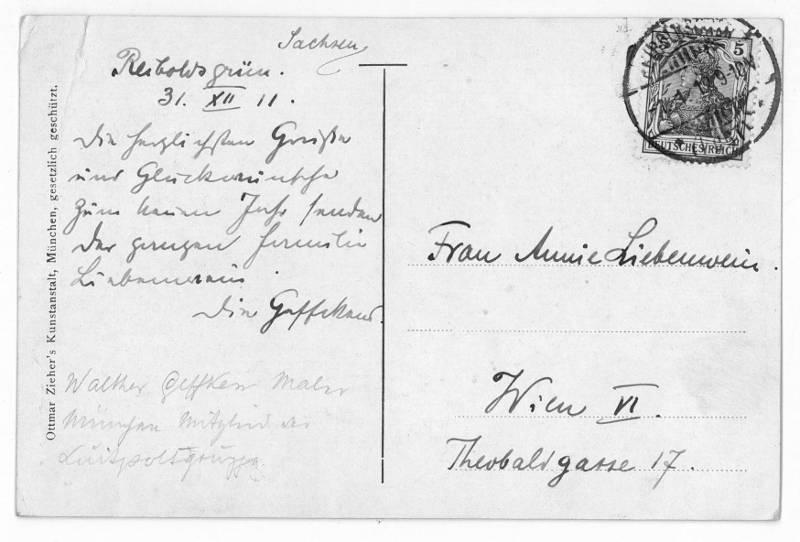 Sachsen
Reiboldsgrün.
31. XII 11.
Die herzlichsten Grüße
und Glückwünsche
zum neuen Jahr senden
der ganzen Familie
Liebenwein
Die Geffckens.
Walther Geffken Maler
München Mitglied der
Luitpoldgruppe
Ottmar Zieher's Kunstanstalt, München, gesetzlich geschürzt.
5
DEUTSCHES REICH
Frau Annie Liebenwein.
Wien VI.
Theobaldgasse 17.